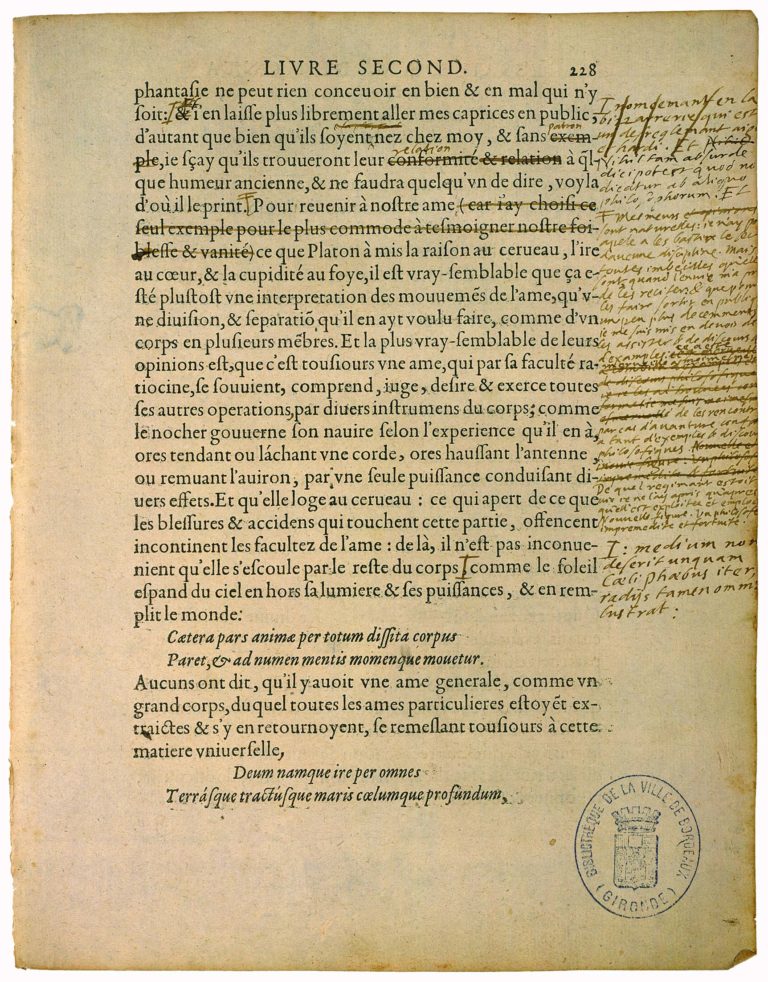 LIVRE SECOND. 228
phantasie ne peut rien conceuoir en bien & en mal qui n'y
soit: & i en laisse plus librement aller mes caprices en public,
d'autant que bien qu'ils soyent nez chez moy, & sans exem-
patron
ple, ie sçay qu'ils trouueront leur conformité & relation à ql-
relation
que humeur ancienne, & ne faudra quelqu'vn de dire, voyla
d'où il le print. Pour reuenir à nostre ame (car i'ay choisi ce
seul exemple pour le plus commode à tesmoigner nostre foi-
blesse & vanité) ce que Platon à mis la raison au cerueau, l'ire
au cœur, & la cupidité au foye, il est vray-semblable que ça e-
sté plustost vne interpretation des mouuemẽs de l'ame, qu'v-
ne diuision, & separatiõ qu'il en ayt voulu faire, comme d'vn
corps en plusieurs mẽbres. Et la plus vray-semblable de leurs
opinions est, que c'est tousiours vne ame, qui par sa faculté ra-
tiocine, se souuient, comprend, iuge, desire & exerce toutes
ses autres operations, par diuers instrumens du corps; comme
le nocher gouuerne son nauire selon l'experience qu'il en à,
ores tendant ou lâchant vne corde, ores haussant l'antenne,
ou remuant l'auiron, par vne seule puissance conduisant di-
uers effets. Et qu'elle loge au cerueau : ce qui apert de ce que
les blessures & accidens qui touchent cette partie, offencent
incontinent les facultez de l'ame : de là, il n'est pas inconue-
nient qu'elle s'escoule par le reste du corps comme le soleil
espand du ciel en hors sa lumiere & ses puissances, & en rem-
plit le monde:
Cætera pars animæ per totum dissita corpus
Paret, & ad numen mentis momenque mouetur.
Aucuns ont dit, qu'il y auoit vne ame generale, comme vn
grand corps, duquel toutes les ames particulieres estoyẽt ex-
traictes & s'y en retournoyent, se remeslant tousiours à cette
matiere vniuerselle,
Deum namque ire per omnes
Terrásque tractúsque maris cœlumque profundum,
dicatur ab aliquo
philosophorum. Et
d'aucune discipline. Mais
quand l'enuie m'a pris
de les reciter
les faire sortir en public
un peu plus
ie me suis mis en deuoir de
les assister & de discours &
d'exemples
de les rencontrer
par cas d'auanture conformes
à tant d'exemples & discours
philosofiques.
De quel regimant estoit
Nouuelle figure: Un philosofe
impremedité & fortuite.
: medium non
deserit unquam
Cœli phœbus iter,
radijs tamen omnia
lustrat:
BIBLIOTHEQUE DE LA VILLE DE BORDEAUX
(GIRONDE)